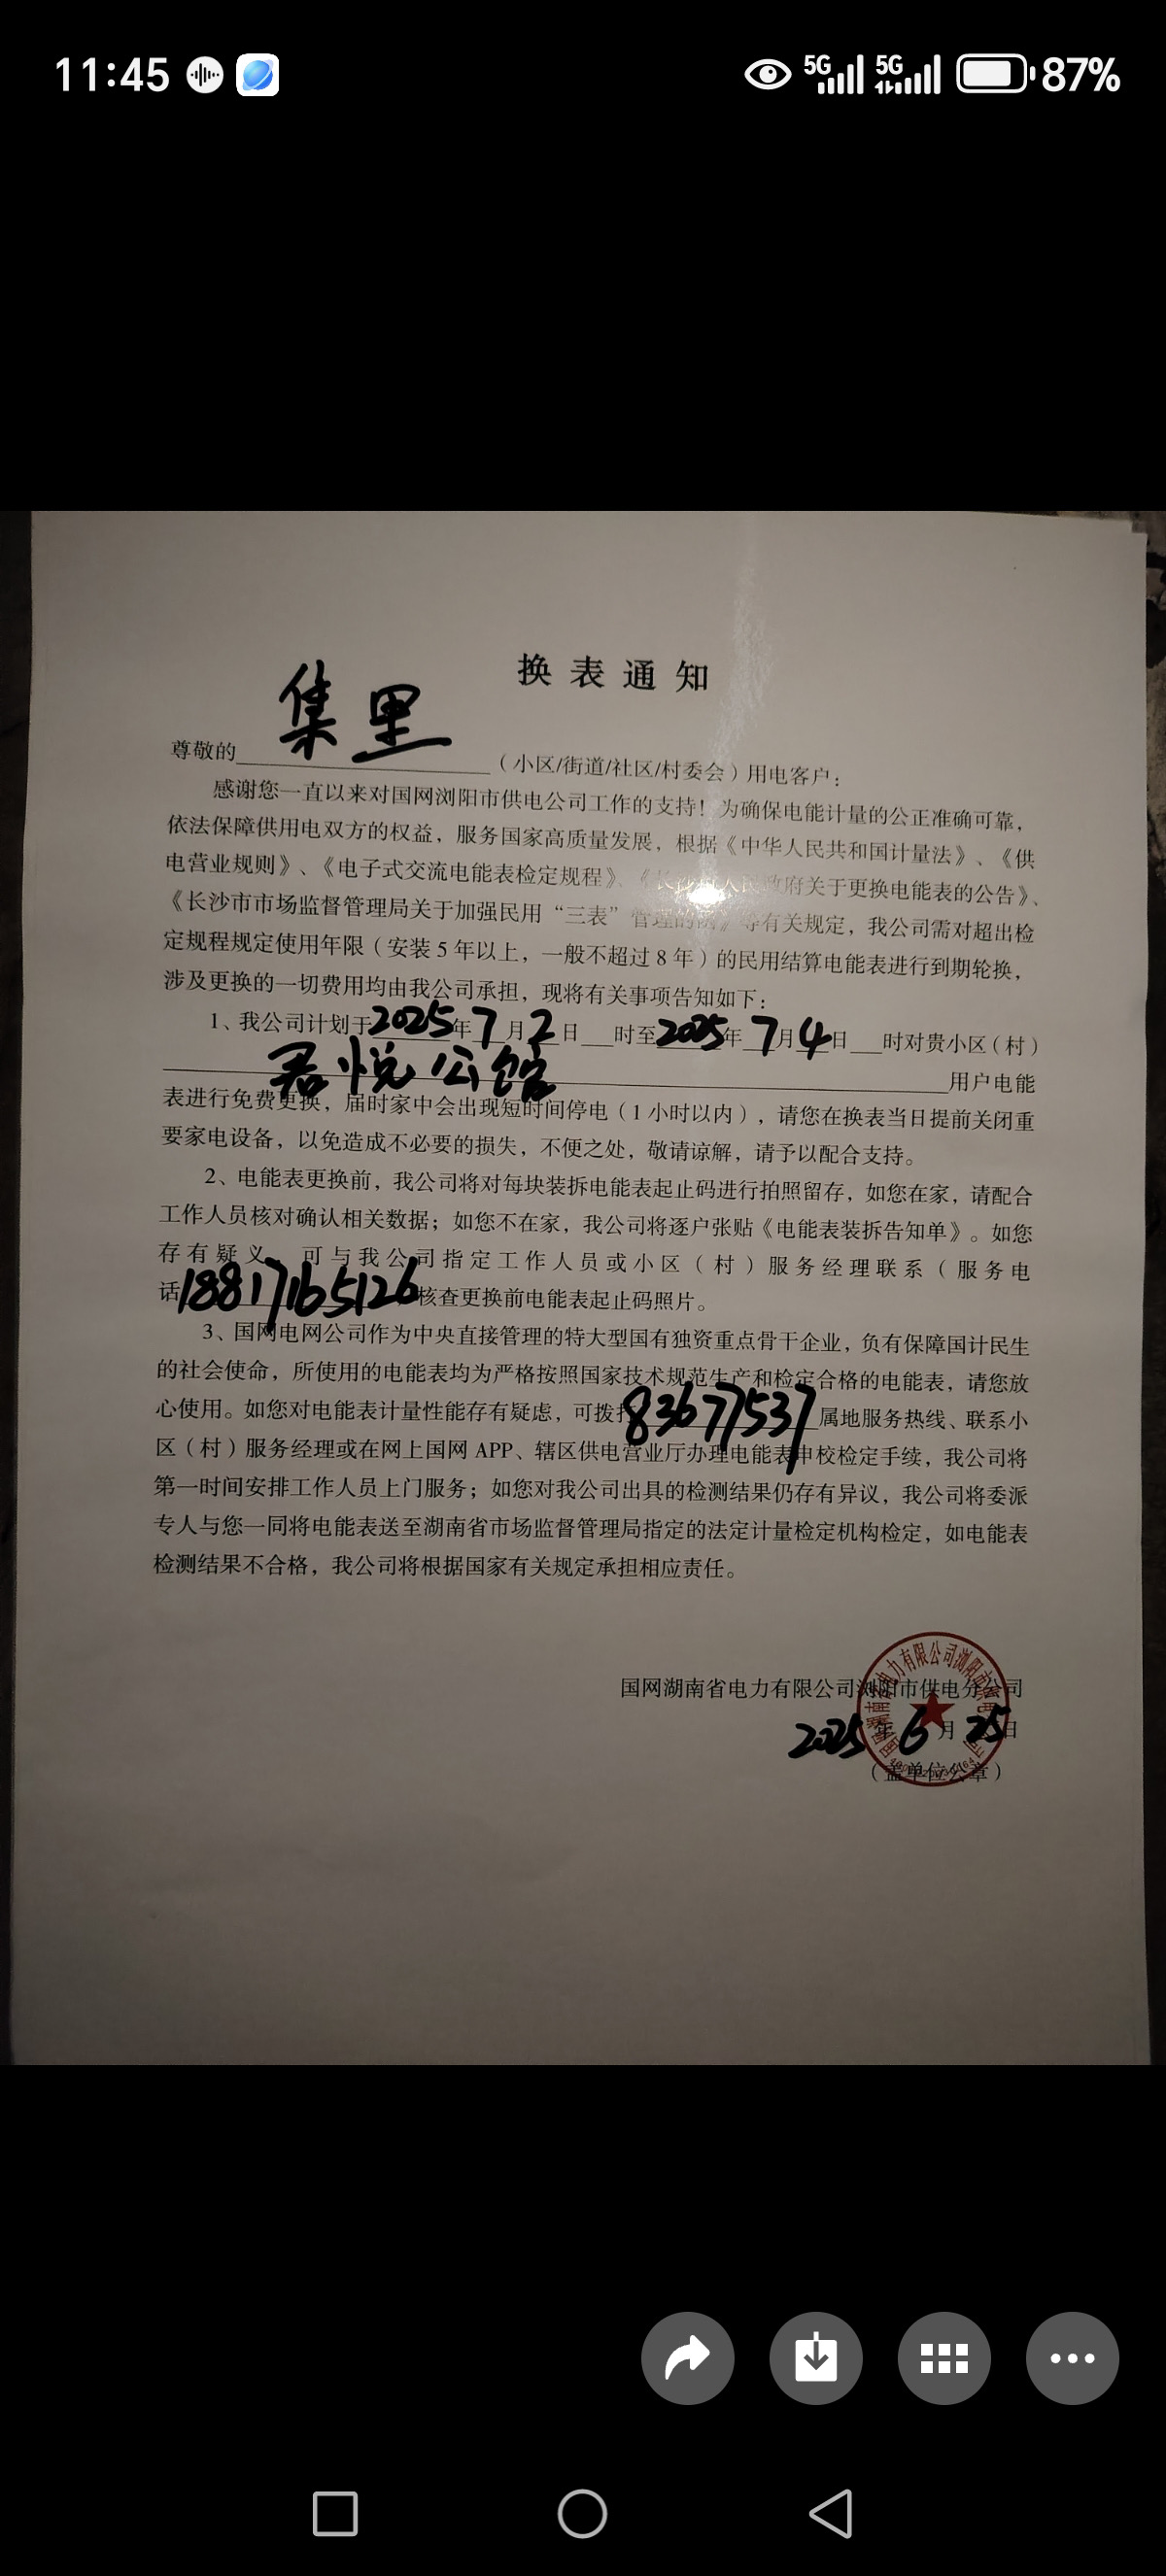 11:45 5G 5G 87%
换表通知
尊敬的集里（小区/街道/社区/村委会）用电客户：
感谢您一直以来对国网浏阳市供电公司工作的支持！为确保电能计量的公正准确可靠，
依法保障供用电双方的权益，服务国家高质量发展，根据《中华人民共和国计量法》、《供
电营业规则》、《电子式交流电能表检定规程》、《长沙市人民政府关于更换电能表的公告》、
《长沙市市场监督管理局关于加强民用“三表”管理的》等有关规定，我公司需对超出检
定规程规定使用年限（安装5年以上，一般不超过8年）的民用结算电能表进行到期轮换，
涉及更换的一切费用均由我公司承担，现将有关事项告知如下：
1、我公司计划于2025年7月2日___时至2025年7月4日___时对贵小区（村）
君悦公馆用户电能
表进行免费更换，届时家中会出现短时间停电（1小时以内），请您在换表当日提前关闭重
要家电设备，以免造成不必要的损失，不便之处，敬请谅解，请予以配合支持。
2、电能表更换前，我公司将对每块装拆电能表起止码进行拍照留存，如您在家，请配合
工作人员核对确认相关数据；如您不在家，我公司将逐户张贴《电能表装拆告知单》。如您
存有疑义，可与我公司指定工作人员或小区（村）服务经理联系（服务电
话18817165126，核查更换前电能表起止码照片。
3、国网电网公司作为中央直接管理的特大型国有独资重点骨干企业，负有保障国计民生
的社会使命，所使用的电能表均为严格按照国家技术规范生产和检定合格的电能表，请您放
心使用。如您对电能表计量性能存有疑虑，可拨打83677537属地服务热线、联系小
区（村）服务经理或在网上国网APP、辖区供电营业厅办理电能表申校检定手续，我公司将
第一时间安排工作人员上门服务；如您对我公司出具的检测结果仍存有异议，我公司将委派
专人与您一同将电能表送至湖南省市场监督管理局指定的法定计量检定机构检定，如电能表
检测结果不合格，我公司将根据国家有关规定承担相应责任。
国网湖南省电力有限公司浏阳市供电分公司
2025年6月25日
（盖单位公章）